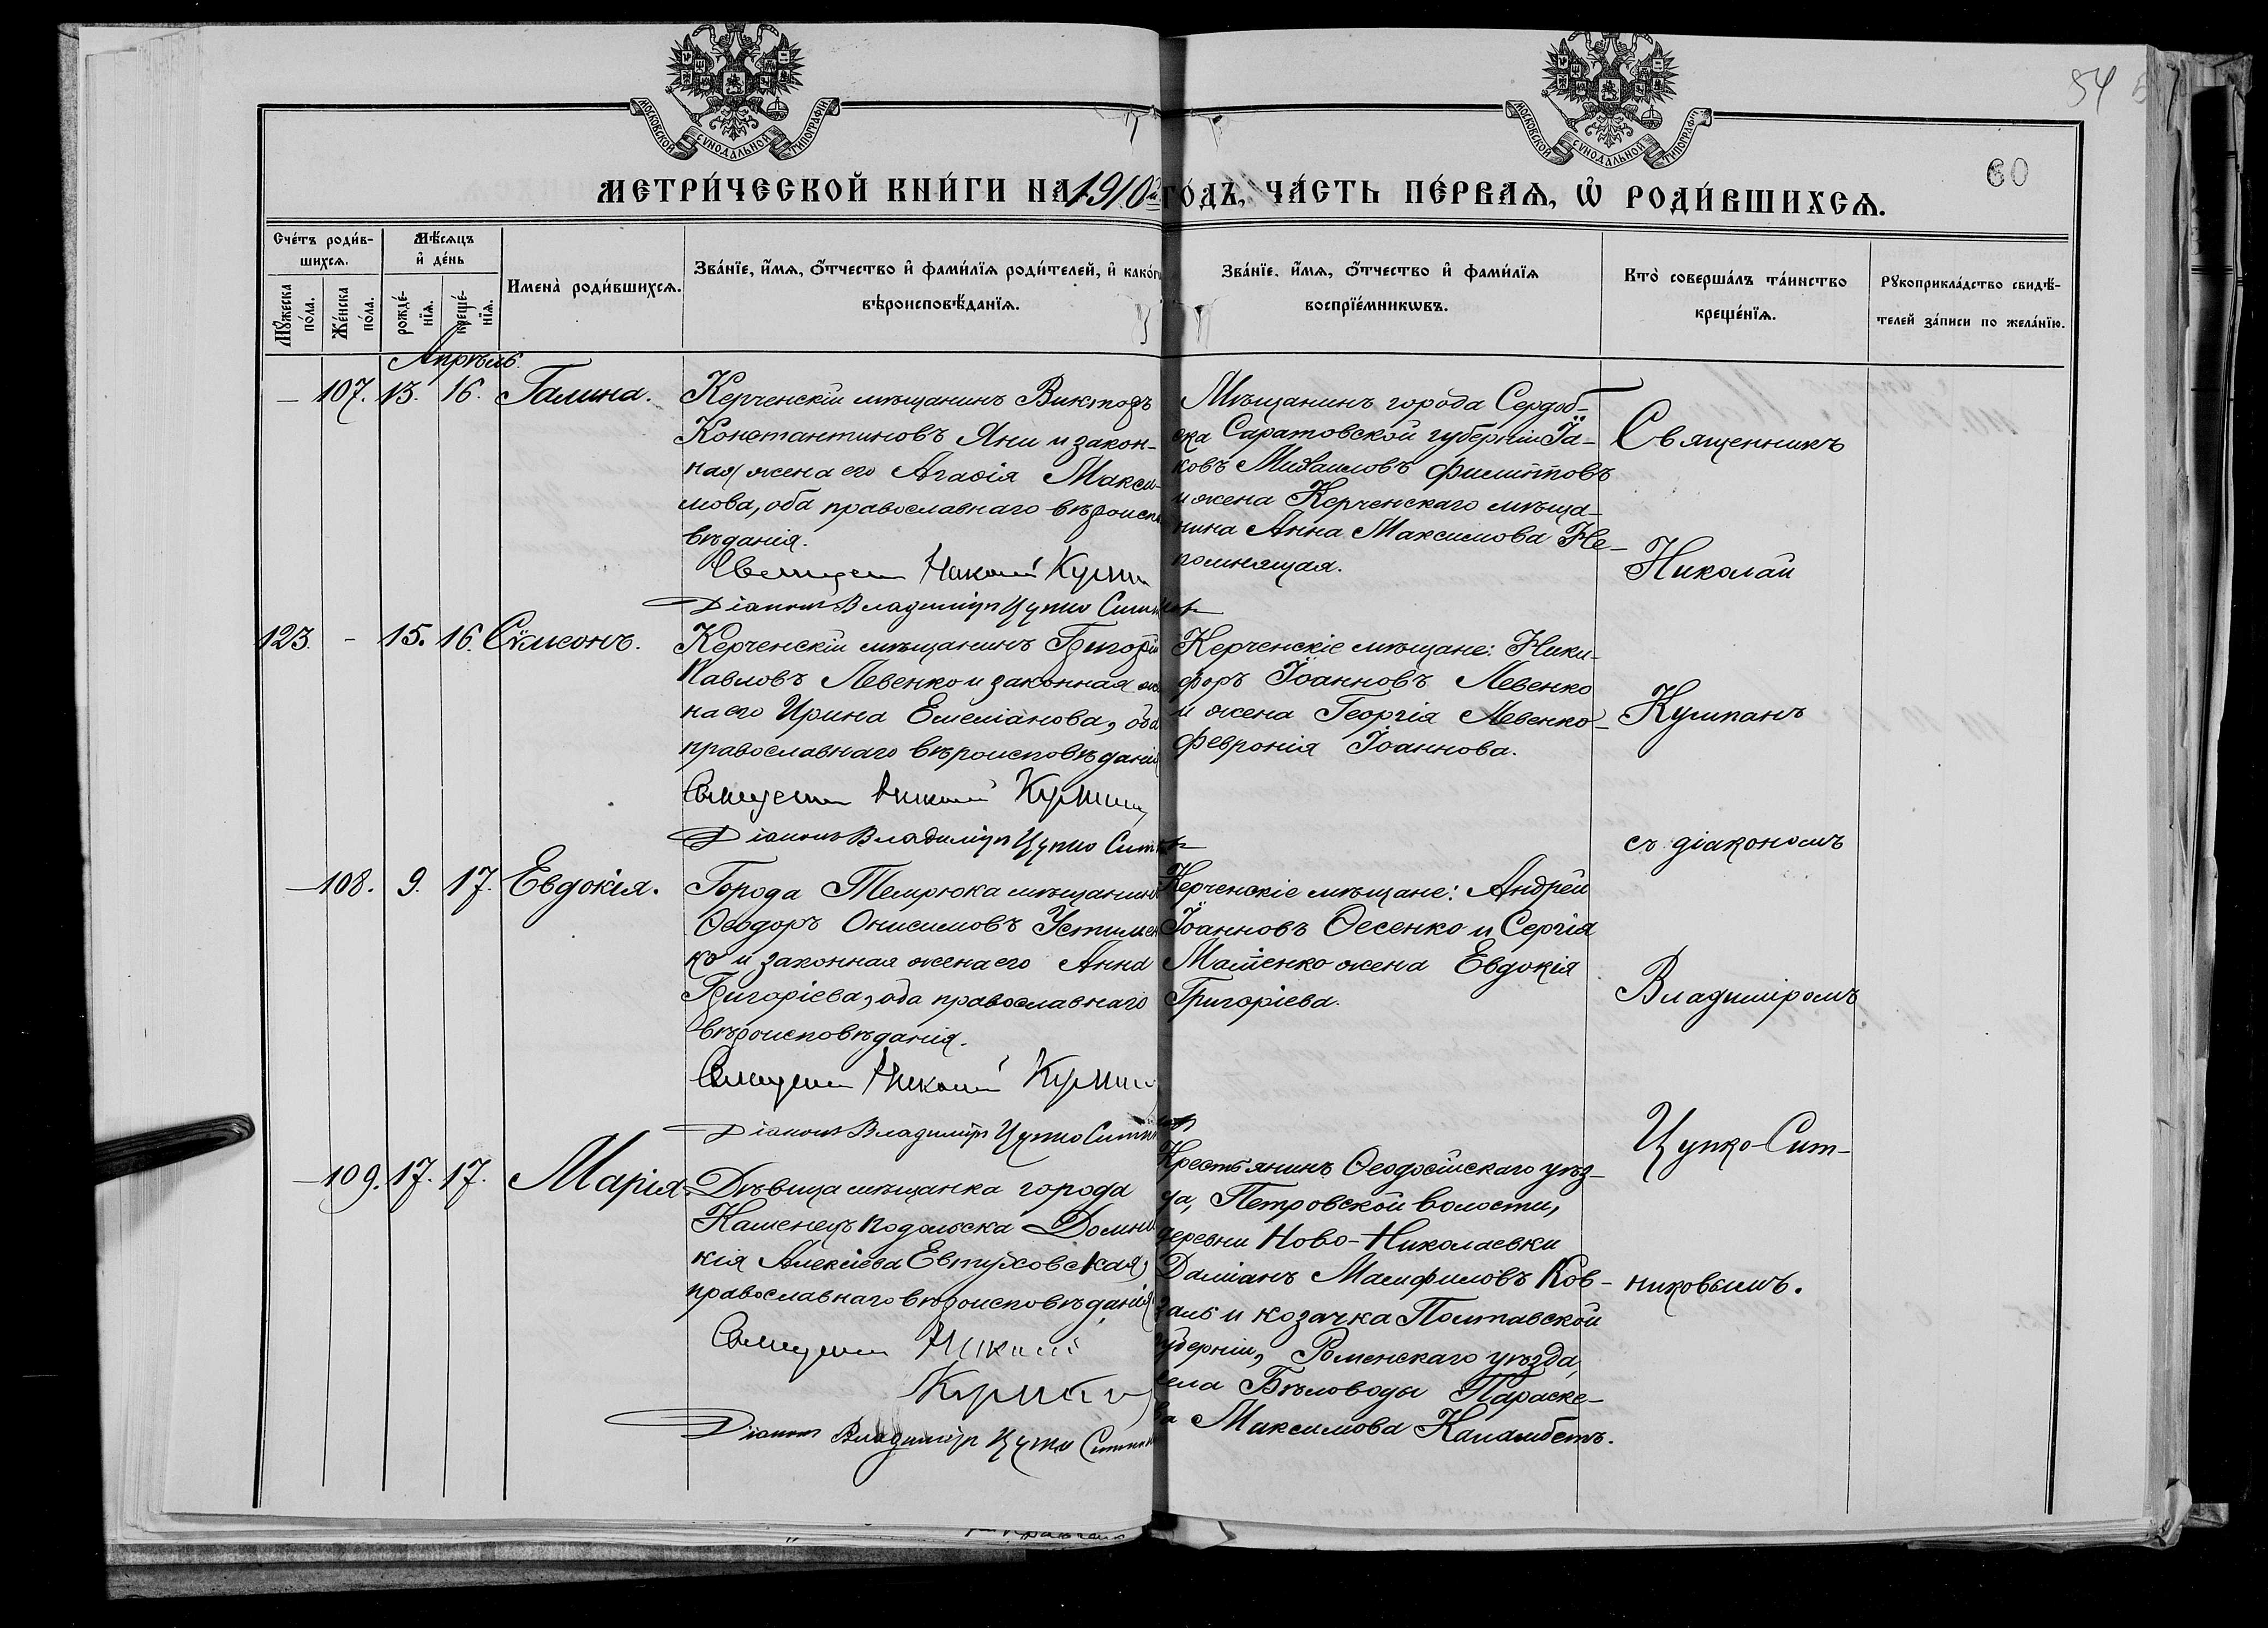 МОСКОВСКОЙ СѴНОДАЛЬНОЙ ТИПОГРАФІИ
МОСКОВСКОЙ СѴНОДАЛЬНОЙ ТИПОГРАФІИ
54
60
МЕТРИ́ЧЕСКОЙ КНИ́ГИ НА 1910й ГО́ДЪ, ЧА́СТЬ ПЕ́РВАѦ, Ѡ҆ РОДИ́ВШИХСѦ.
Сче́тъ роди́в-
шихсѧ.
Мꙋ́жеска
по́ла.
Же́нска
по́ла.
Мѣ́сѧцъ
и҆ де́нь
рожде́-
нїѧ.
креще́-
нїѧ.
Имена̀ роди́вшихсѧ.
Зва́нїе, и҆́мѧ, ѻ҆́тчество и҆ фами́лїѧ роди́телей, и҆ како́гѡ
вѣроисповѣ́данїѧ.
Зва́нїе, и҆́мѧ, ѻ҆́тчество и҆ фами́лїѧ
воспрїе́мникѡвъ.
Кто̀ соверша́лъ та́инство
креще́нїѧ.
Рꙋкоприкла́дство свидѣ́-
телей за́писи по жела́нїю.
Апрѣль.
— 107. 13. 16. Галина.
Керченскій мѣщанинъ Викторъ
Константиновъ Яни и закон-
ная жена его Агаѳія Макси-
мова, оба православнаго вѣроиспо
вѣданія.
Священ Николай Курман
Діаконъ Владиміръ Цупко Ситников
Мѣщанинъ города Сердоб-
ска Саратовской губерніи Іа-
ковъ Михаиловъ Филипповъ
и жена Керченскаго мѣща-
нина Анна Максимова Не-
помнящая.
123. - 15. 16. Сѵмеонъ.
Керченскій мѣщанинъ Григорій
Павловъ Левенко и законная же
на его Ирина Емеліанова, оба
православнаго вѣроисповѣданія
Діаконъ Владиміръ Цупко Ситников
Керченскіе мѣщане: Ники-
форъ Іоанновъ Левенко
и жена Георгія Левенко-
Февронія Іоаннова.
— 108. 9. 17. Евдокія.
Города Темрюка мѣщанинъ
Ѳеодоръ Онисимовъ Устимен
ко и законная жена его Анна
Григоріева, оба православнаго
вѣроисповѣданія.
Діаконъ Владиміръ Цупко Ситников
Керченскіе мѣщане: Андрей
Іоанновъ Ѳесенко и Сергія
Жена Евдокія
Григоріева.
— 109. 17. 17. Марія.
Дѣвица мѣщанка города
Каменецъ Подольска Домни
кія Алексіева Евтуховская,
православнаго вѣроисповѣданія.
Діаконъ Владиміръ Цупко Ситников
Крестьянинъ Ѳеодосійскаго уѣз-
да, Петровской волости,
деревни Ново-Николаевки
Даміанъ Мамфиловъ Ков-
галь и козачка Полтавской
губерніи, Роменскаго уѣзда,
села Бѣловоды Параске-
ва Максимова
Священникъ
Николай
Курпанъ
съ діакономъ
Владиміромъ
Цупко-Сит-
никовымъ.